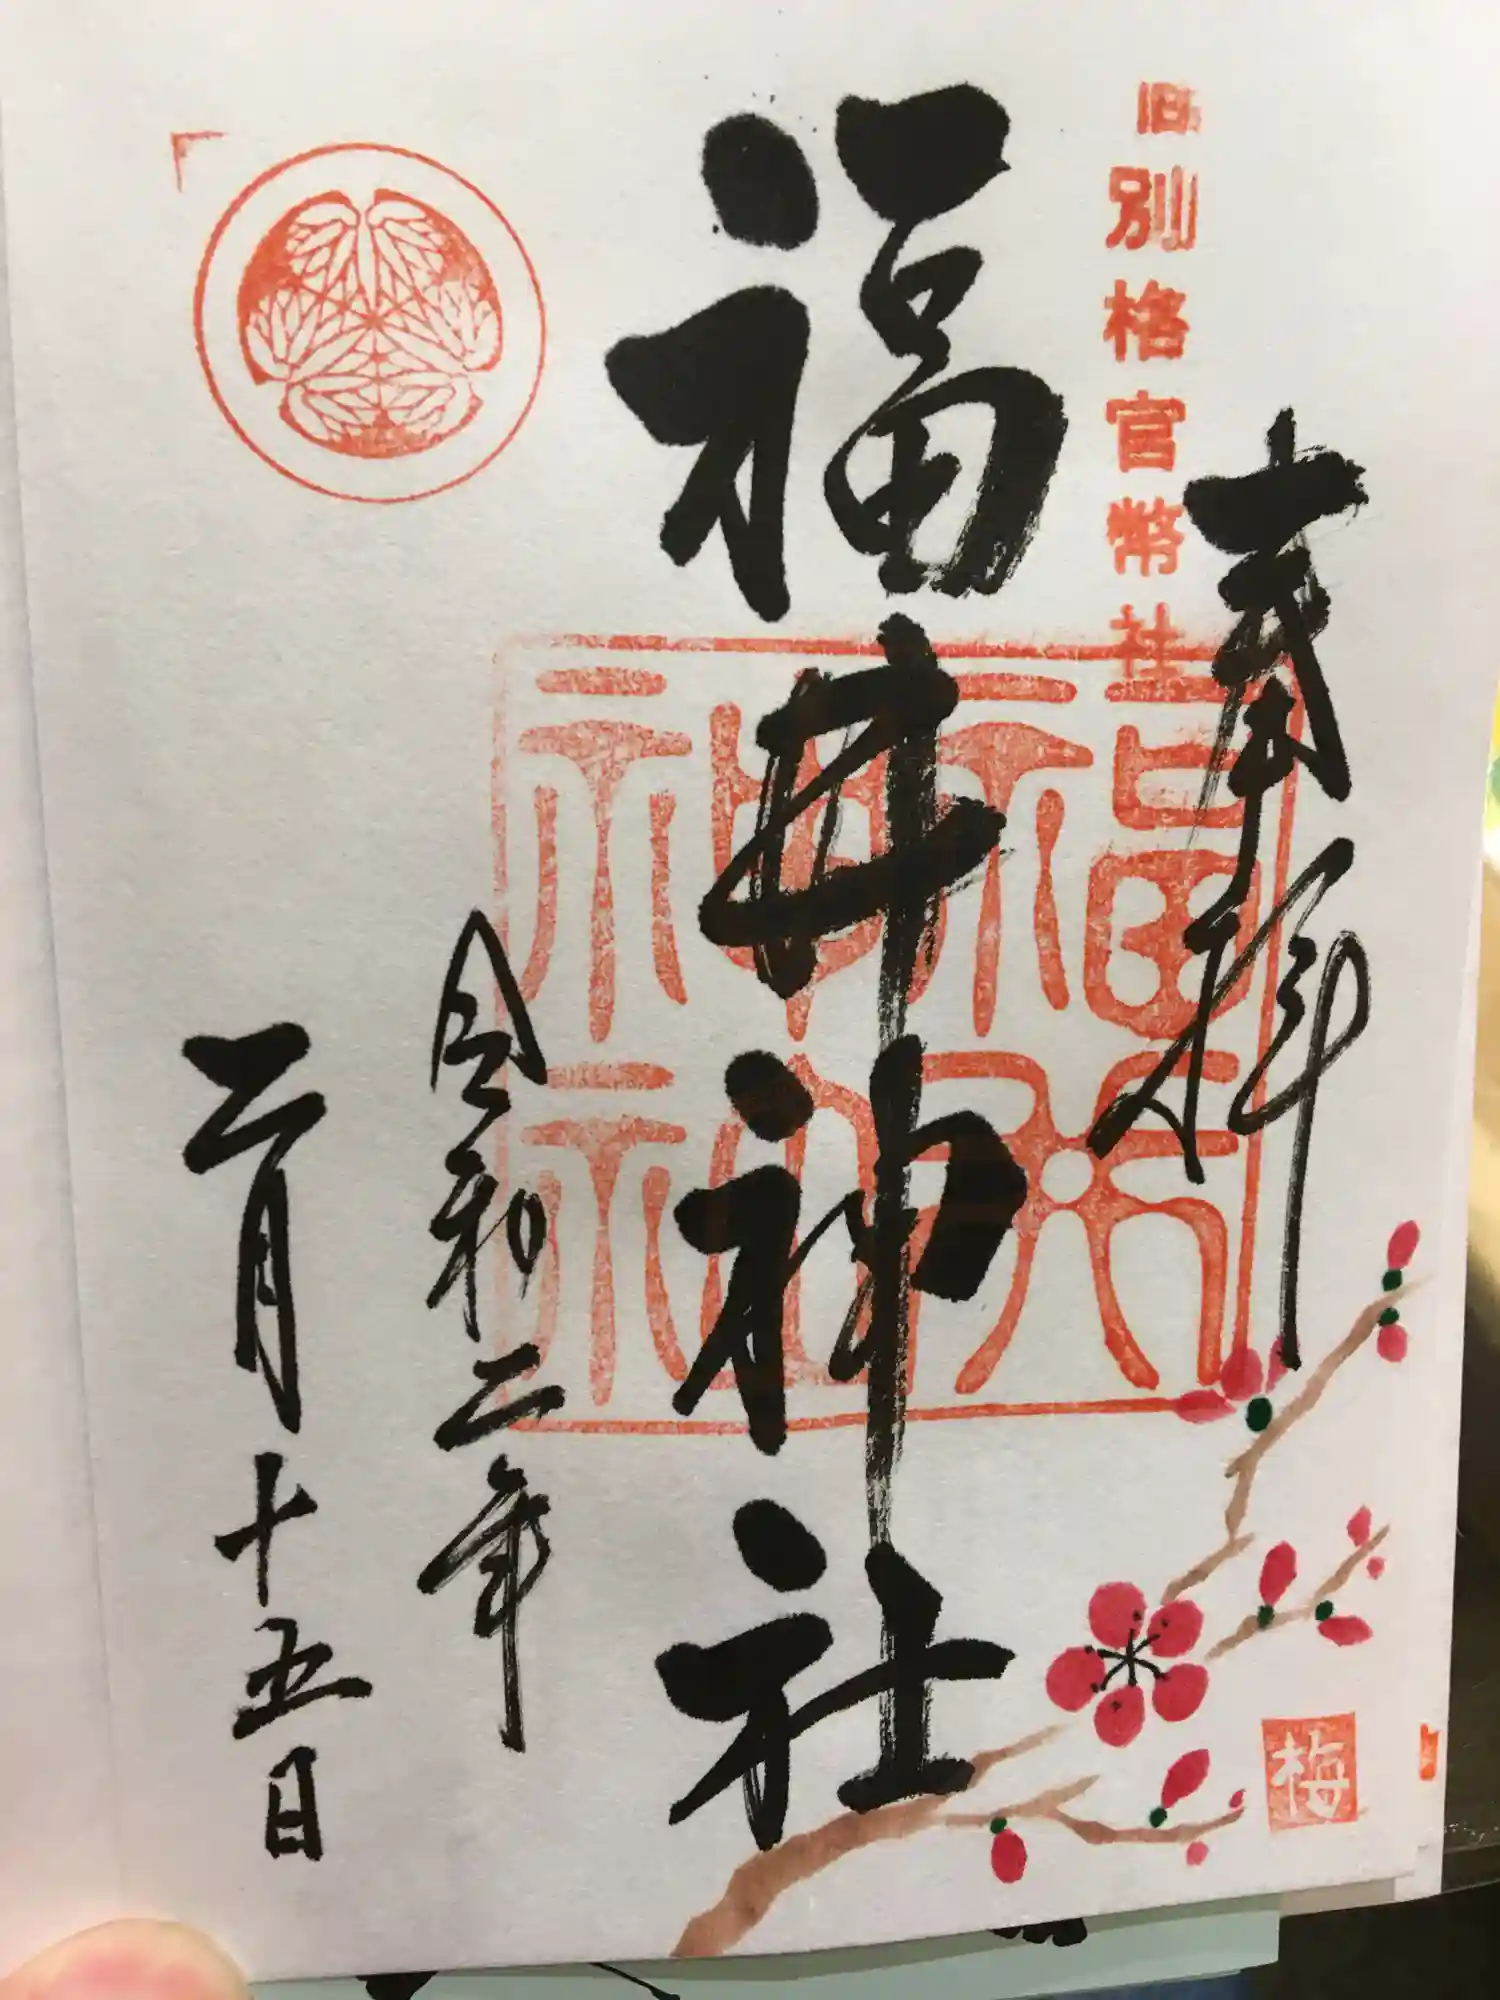 奉拝
旧別格官幣社
福井神社
福井神社
令和二年
二月十五日
梅